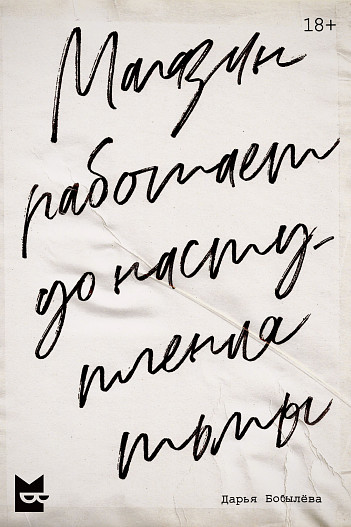 18+
Магазин
работает
до насту-
пления
тьмы
Дарья Бобылёва